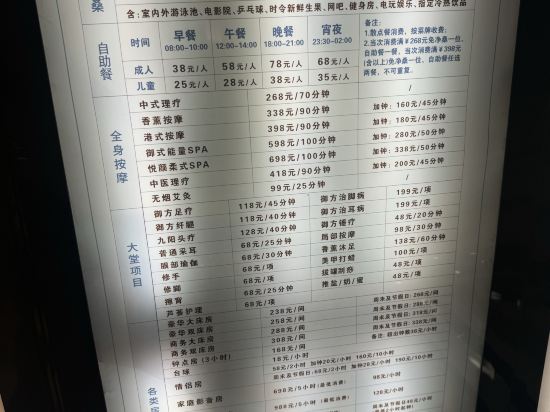 桑
含: 室内外游泳池、电影院、乒乓球、时令新鲜生果、网吧、健身房、电玩娱乐、指定冷热饮品
自助餐
时间 早餐 08:00~10:00 午餐 12:00~14:00 晚餐 18:00~21:00 宵夜 23:30~02:00
成人 38元/人 58元/人 78元/人 68元/人
儿童 25元/人 28元/人 38元/人 35元/人
备注:
1.散点餐消费,按菜牌收费;
2.当次消费满¥268元免净桑一位、
自助餐一餐、当次消费满¥398元
(含以上)免净桑一位,自助餐任选
两餐,不可重复。
全身按摩
中式理疗 268元/70分钟 /
香薰按摩 338元/90分钟 加钟: 160元/45分钟
港式按摩 398元/90分钟 加钟: 180元/45分钟
御式能量SPA 598元/100分钟 加钟: 280元/50分钟
悦颜柔式SPA 698元/100分钟 加钟: 338元/50分钟
中医理疗 418元/90分钟 加钟: 200元/45分钟
无烟艾灸 99元/25分钟 /
大堂项目
御方足疗 118元/45分钟 御方治脚病 199元/项
御方纤腿 118元/40分钟 御方治耳病 199元/项
九阳头疗 128元/40分钟 御方锤疗 48元/20分钟
普通采耳 68元/25分钟 局部按摩 98元/30分钟
眼部瑜伽 68元/30分钟 香薰沐足 138元/60分钟
修手 68元/项 美甲打蜡 100元/项
修脚 68元/项 拔罐刮痧 48元/项
擦背 68元/25分钟 推盐/奶/蜜 48元/项
芦荟护理 68元/30分钟
各类房
豪华大床房 238元/间 周末及节假日: 268元/间
豪华双床房 258元/间
商务大床房 288元/间 周末及节假日: 318元/间
商务双床房 308元/间 周末及节假日: 338元/间
钟点房 (3小时) 168元/间
台球 18元/小时
58元/2小时 加钟20元/小时 160元/10小时
周末及节假日:
情侣房 698元/5小时(最低消费) 98元/小时
家庭影音房 988元/5小时(最低消费) 128元/小时